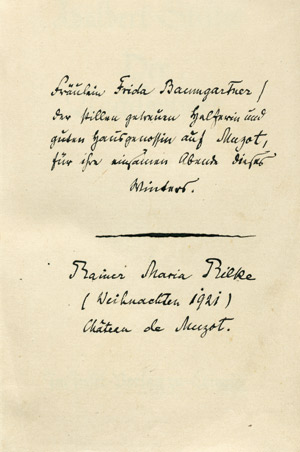 Fräulein Frida Baumgartner /
der stillen getreuen Helferin und
guten Hausgenossin auf Muzot,
für ihre einsamen Abende dieses
Winters.
Rainer Maria Rilke
(Weihnachten 1921)
Château de Muzot.